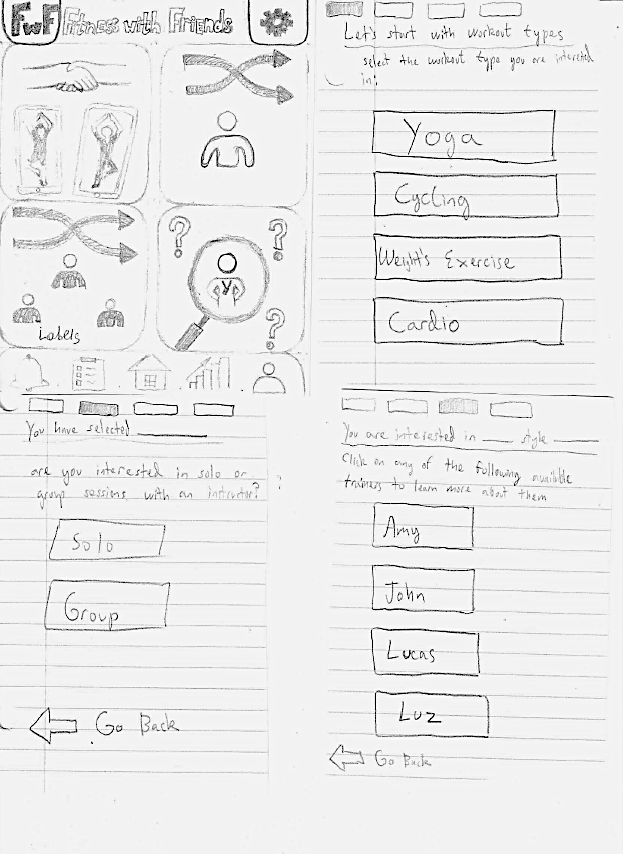 FWF Fitness with Friends
? ?
Y
?
Labels
Let's start with workout types
select the workout type you are interested
in:
Yoga
Cycling
Weight's Exercise
Cardio
You have selected
are you interested in solo or
group sessions with an intrcutor?
?
Solo
Group
Go Back
You are interested in ____ style ____
Click on any of the following available
trainers to learn more about them
Amy
John
Lucas
Luz
Go Back